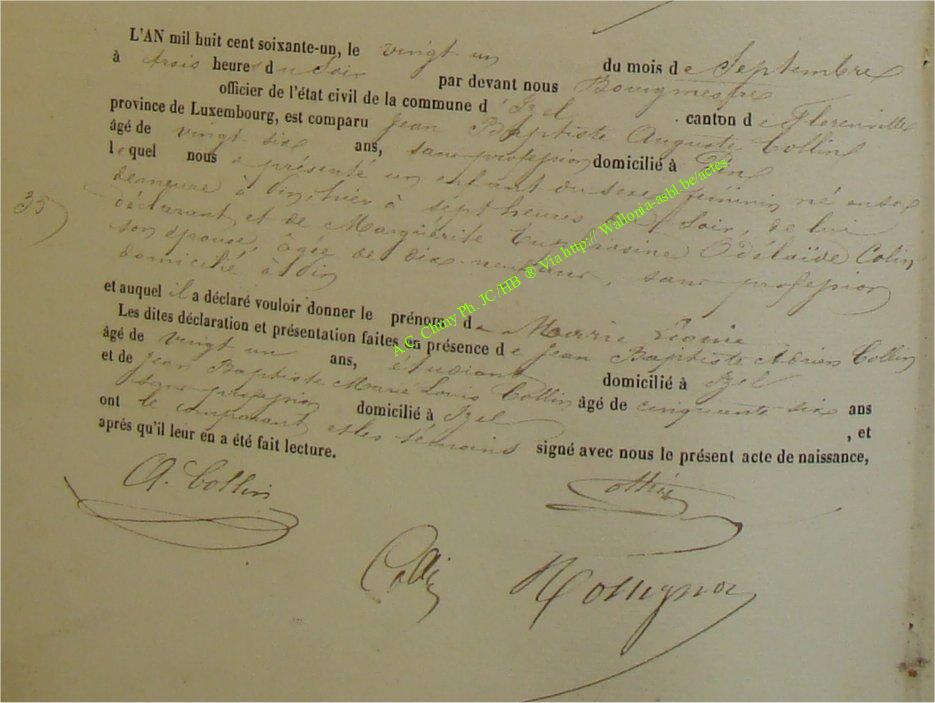 L'AN mil huit cent soixante-un, le vingt un du mois de Septembre
à trois heures du Soir par devant nous Bourgmestre
officier de l'état civil de la commune d'Izel canton de Florenville
province de Luxembourg, est comparu Jean Baptiste Auguste Collin
âgé de vingt six ans, sans profession domicilié à Pin
lequel nous a présenté un enfant du sexe féminin né en sa
demeure à Pin, hier à sept heures du Soir, de lui
déclarant et de Marguérite Odélaïde Colin
son épouse, âgée de dix-neuf ans, sans profession
domicilié à Pin
35
et auquel il a déclaré vouloir donner le prénom de Marie
Les dites déclaration et présentation faites en présence de Jean Baptiste Adrien Collin
âgé de vingt un ans, étudiant domicilié à Izel
et de Jean Baptiste Marie Louis Collin âgé de cinquante six ans
sans profession domicilié à Izel , et
ont le comparant et les témoins signé avec nous le présent acte de naissance,
après qu'il leur en a été fait lecture.
A. Collin
Collin
Collin Rossignon
A.G. Chiny Ph. JC /HB ® Via http:// Wallonia-asbl.be/actes